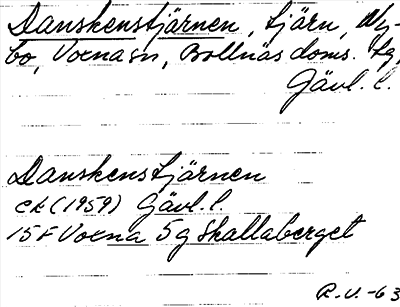 Danskenstjärnen, tjärn, Ny-
bo, Voxna sn, Bollnäs doms. tg,
Gävl. l.
Danskenstjärnen
ek (1959) Gävl. l.
15F Voxna 5g Skallaberget
R.V. -63